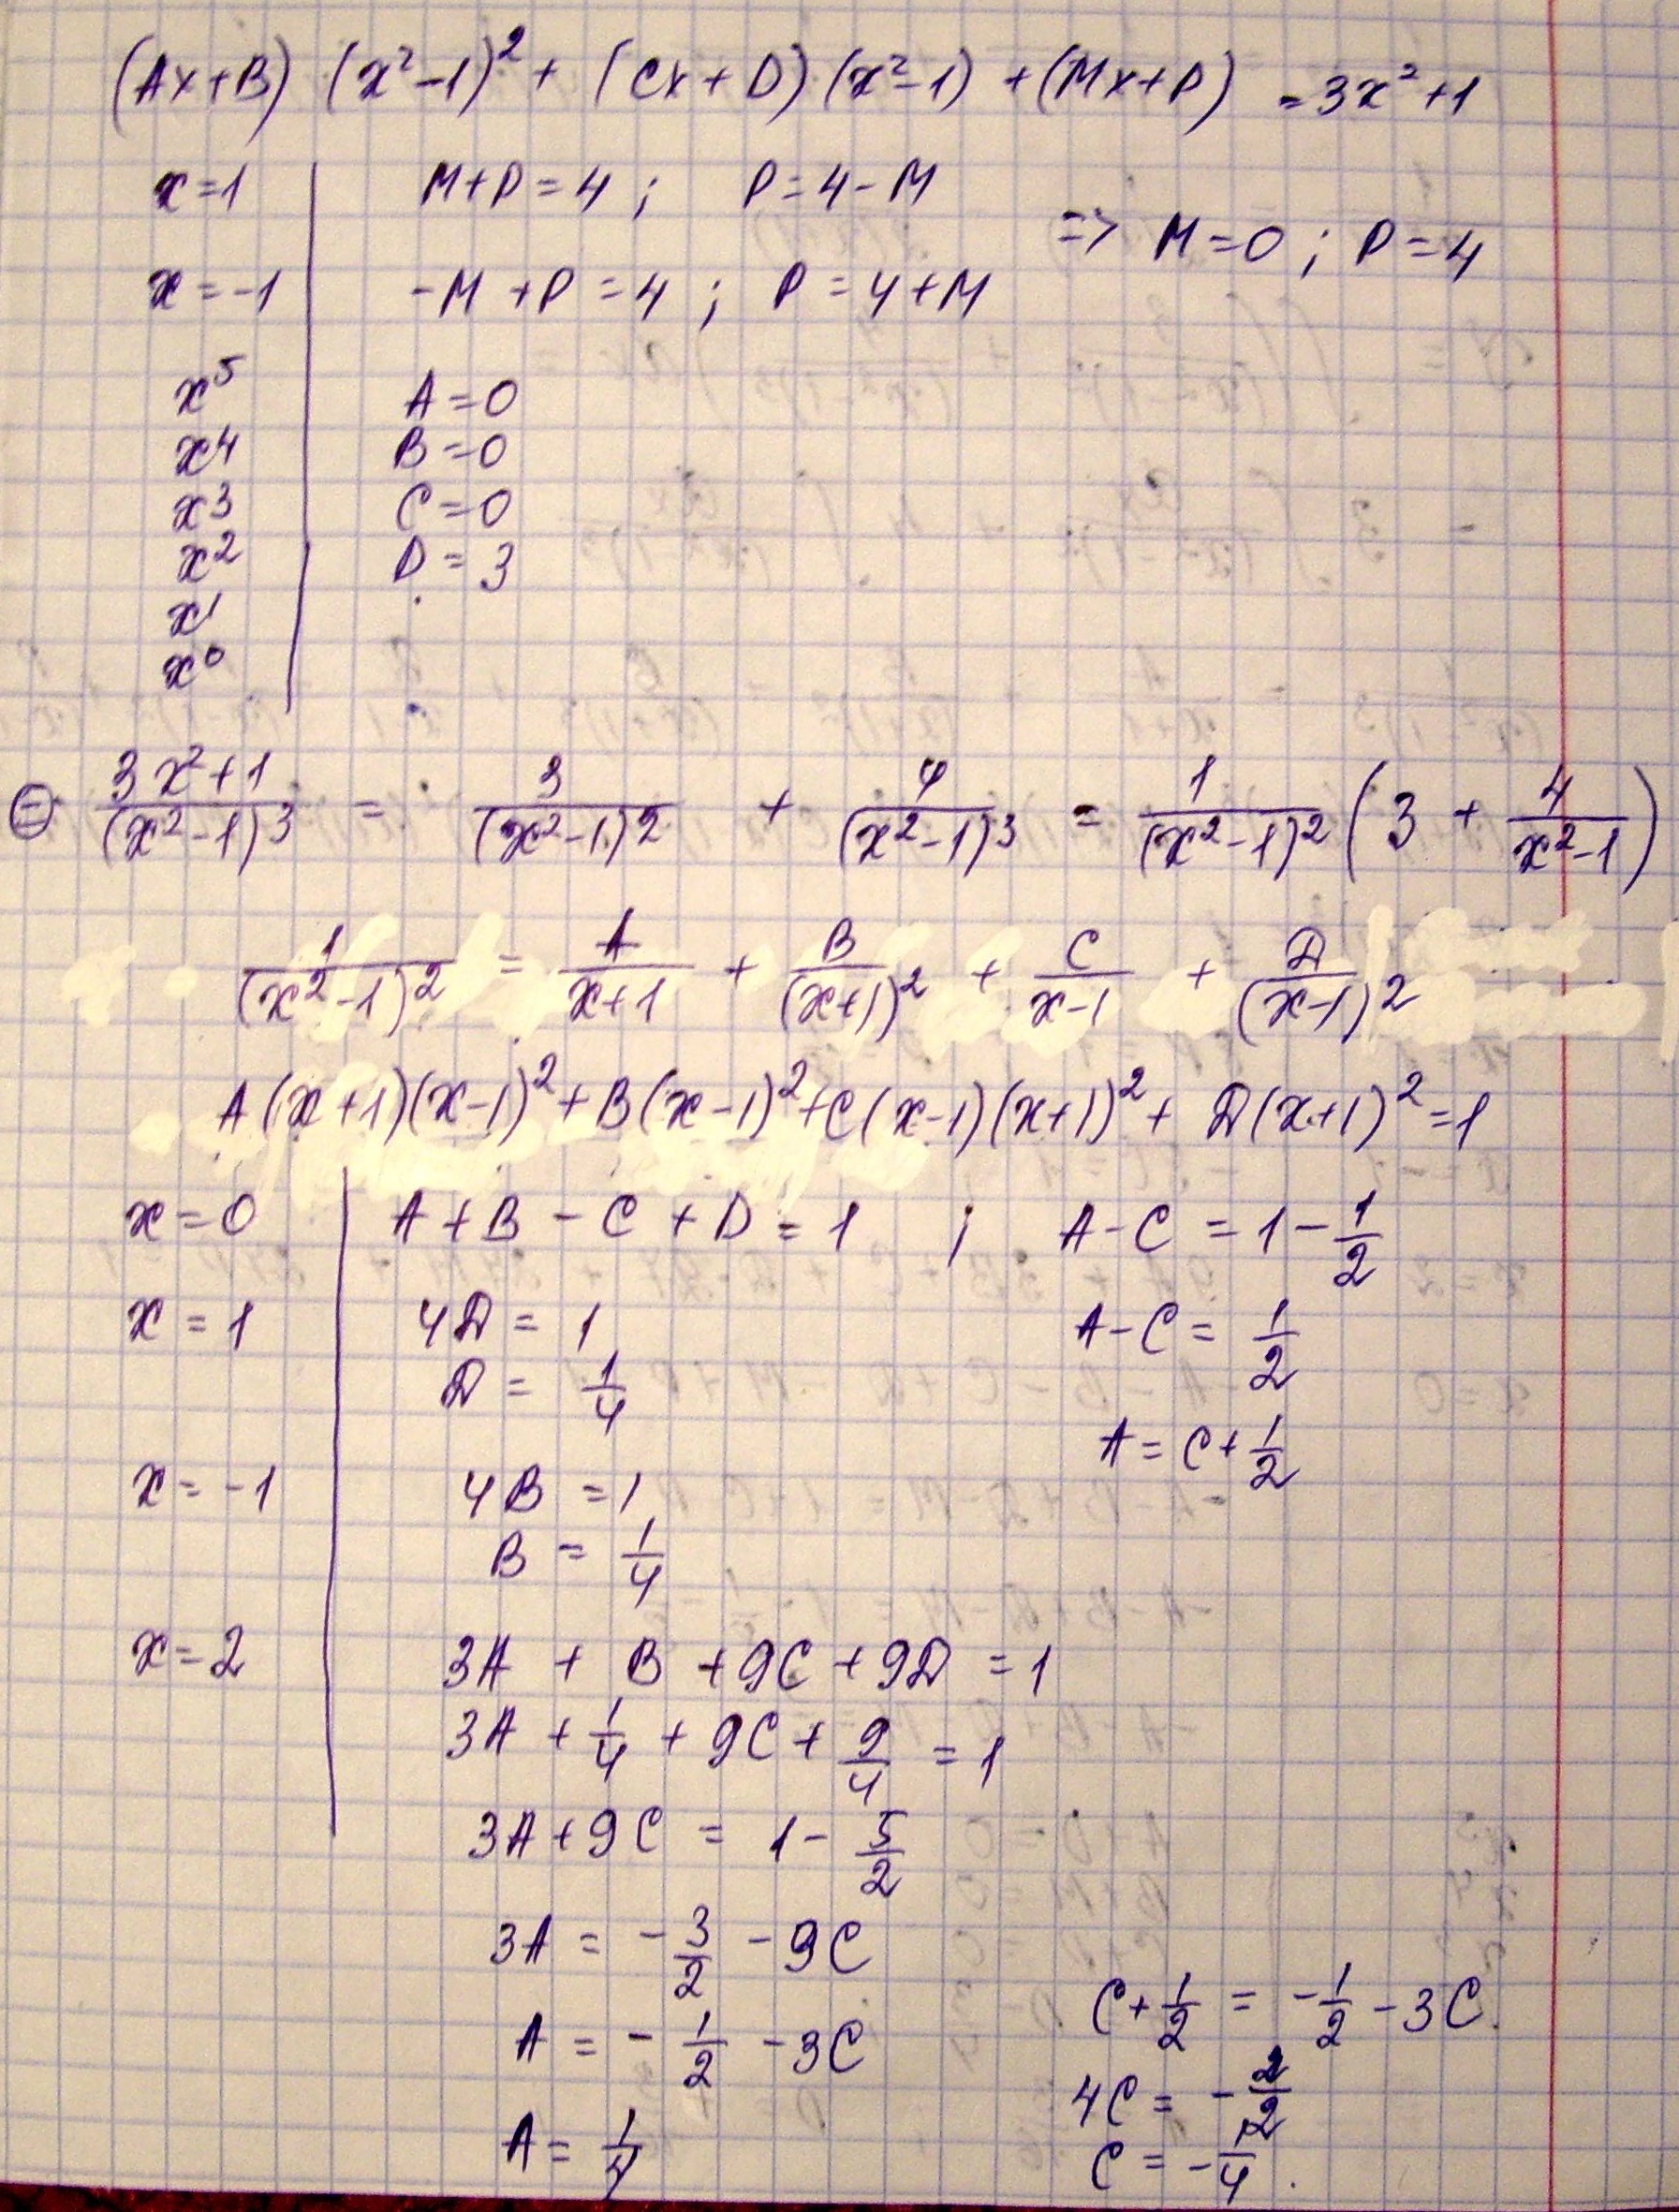 (Ax+B) (x²-1)² + (Cx+D)(x²-1) + (Mx+P) = 3x²+1
x=1 | M+P=4 ; P=4-M
=> M=0 ; P=4
x=-1 | -M+P=4 ; P=4+M
x⁵ | A=0
x⁴ | B=0
x³ | C=0
x² | D=3
x¹
x⁰
⊜ (3x²+1)/(x²-1)³ = 3/(x²-1)² + 4/(x²-1)³ = 1/(x²-1)² (3 + 4/(x²-1))
1/(x²-1)² = A/(x+1) + B/(x+1)² + C/(x-1) + D/(x-1)²
A(x+1)(x-1)² + B(x-1)² + C(x-1)(x+1)² + D(x+1)² = 1
x=0 | A+B-C+D=1 ; A-C = 1 - 1/2
x=1 | 4D=1 A-C = 1/2
D = 1/4
A = C + 1/2
x=-1 | 4B=1
B = 1/4
x=2 | 3A+B+9C+9D=1
3A + 1/4 + 9C + 9/4 = 1
3A+9C = 1 - 5/2
3A = -3/2 - 9C
C + 1/2 = -1/2 - 3C
A = -1/2 - 3C
4C = -2/2
A = 1/4
C = -1/4.